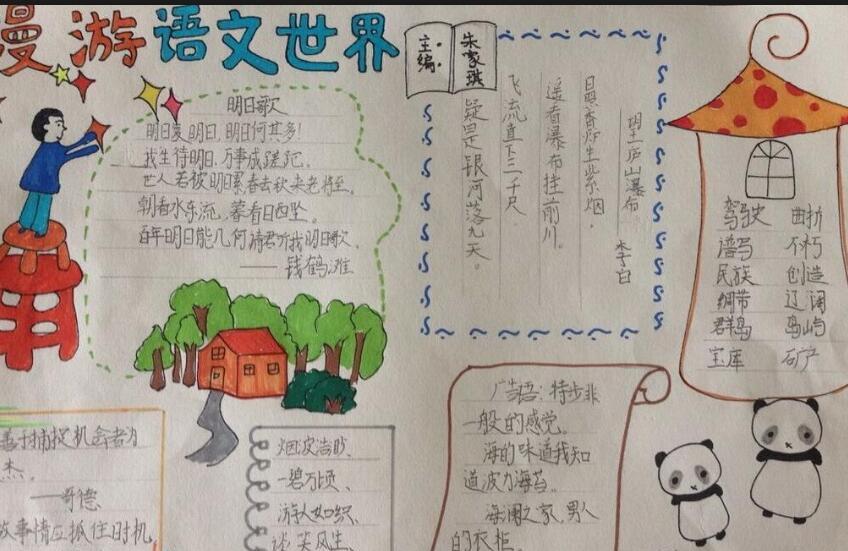 漫游语文世界
主编：
朱家琪
明日歌
明日复明日，明日何其多！
我生待明日，万事成蹉跎。
世人若被明日累，春去秋来老将至。
朝看水东流，暮看日西坠。
百年明日能几何，请君听我明日歌。
——钱鹤滩
望庐山瀑布
李白
日照香炉生紫烟，
遥看瀑布挂前川。
飞流直下三千尺
疑是银河落九天。
驾驶 曲折
谱写 不朽
民族 创造
绸带 辽阔
群岛 岛屿
宝库 矿产
善于捕捉机会者为
杰。
——哥德
故事情应抓住时机
烟波浩渺、
一碧万顷、
游人如织、
谈笑风生、
广告语：特步非
一般的感觉。
海的味道我知
道波力海苔。
海澜之家，男人
的衣柜